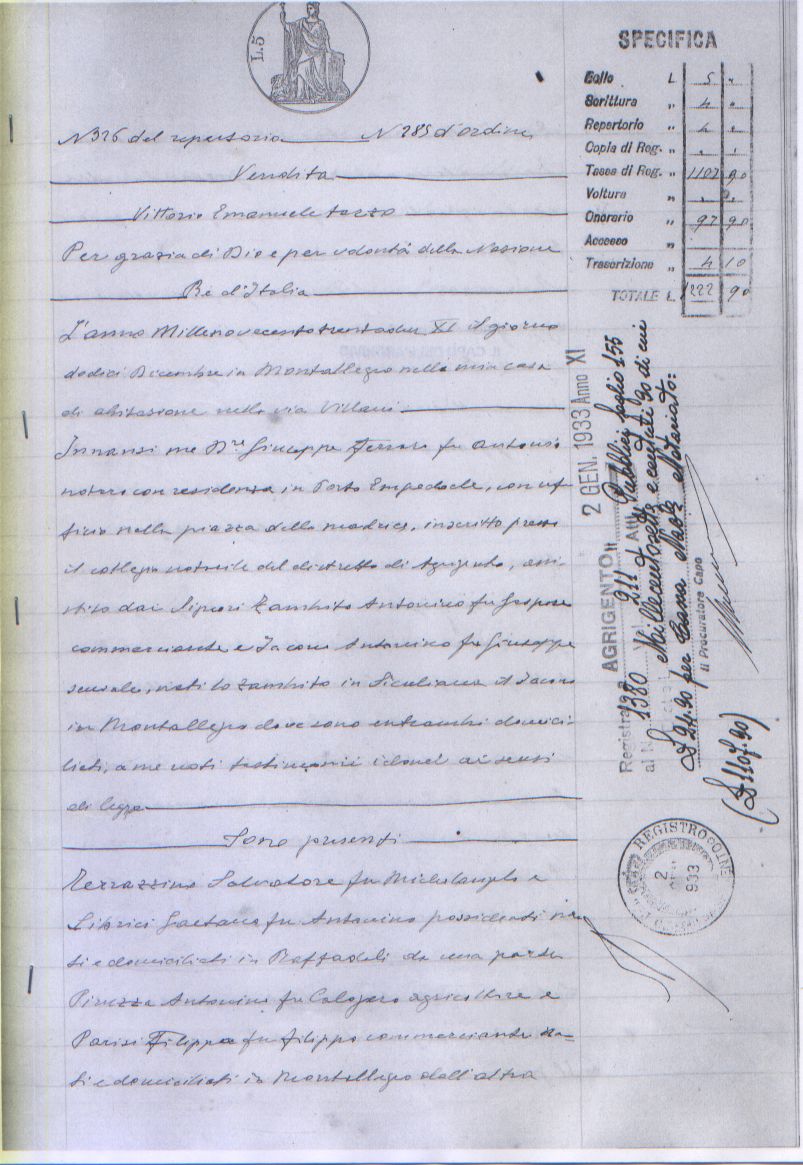 L.5
N 326 del repertorio N 285 d'ordine
Vendita
Vittorio Emanuele terzo
Per grazia di Dio e per volontà della Nazione
Re d'Italia
L'anno Millenovecentotrentadue XI il giorno
dodici Dicembre in Montallegro nella mia casa
di abitazione nella via Villani
Innanzi me Dre Giuseppe Ferraro fu Antonio
notaro con residenza in Porto Empedocle, con uf
ficio nella piazza della madrice, inscritto presso
il collegio notarile del distretto di Agrigento, assi
stito dai Signori Zambito Antonino fu Gaspare
commerciante e Iacono Antonino fu Giuseppe
sensale, nati lo Zambito in Siculiana il Iacono
in Montallegro dove sono entrambi domici
liati, a me noti testimoni idonei ai sensi
di legge
Sono presenti
Terrazzino Salvatore fu Michelangelo e
Librici Gaetano fu Antonino possidenti na
ti e domiciliati in Raffadali da una parte
Piruzza Antonino fu Calogero agricoltore e
Parisi Filippa fu Filippo commerciante na
ti e domiciliati in Montallegro dall'altra
SPECIFICA
Bollo L. 5 "
Scrittura " 4 "
Repertorio " 4 "
Copia di Reg. " " "
Tassa di Reg. " 1107 90
Voltura " " "
Onorario " 97 90
Accesso "
Trascrizione " 4 10
TOTALE L. 1222 90
Registrato AGRIGENTO li 2 GEN. 1933 Anno XI
al N. 1380 Vol. 211 Atti Pubblici foglio 155
L. Millecentosette e centesimi 90 di cui
L 24.90 per Cassa Naz. Notariato:
Il Procuratore Capo
(L 1107.90)
REGISTRO
2
933